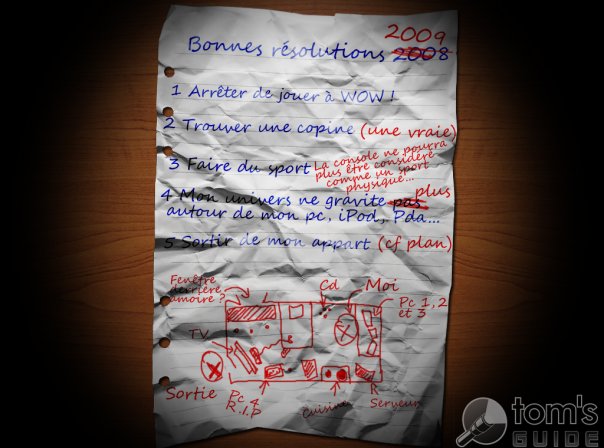 2009
Bonnes résolutions 2008
1 Arrêter de jouer à WOW !
2 Trouver une copine (une vraie)
3 Faire du sport La console ne pourra
plus être considéré
comme un sport
physique...
4 Mon univers ne gravite pas plus
autour de mon pc, iPod, Pda...
5 Sortir de mon appart (cf plan)
Fenêtre
derrière
amoire ?
Cd
Moi
Pc 1,2
et 3
TV
Sortie
Pc 4
R.I.P
Cuisine
Serveur
tom's
GUIDE